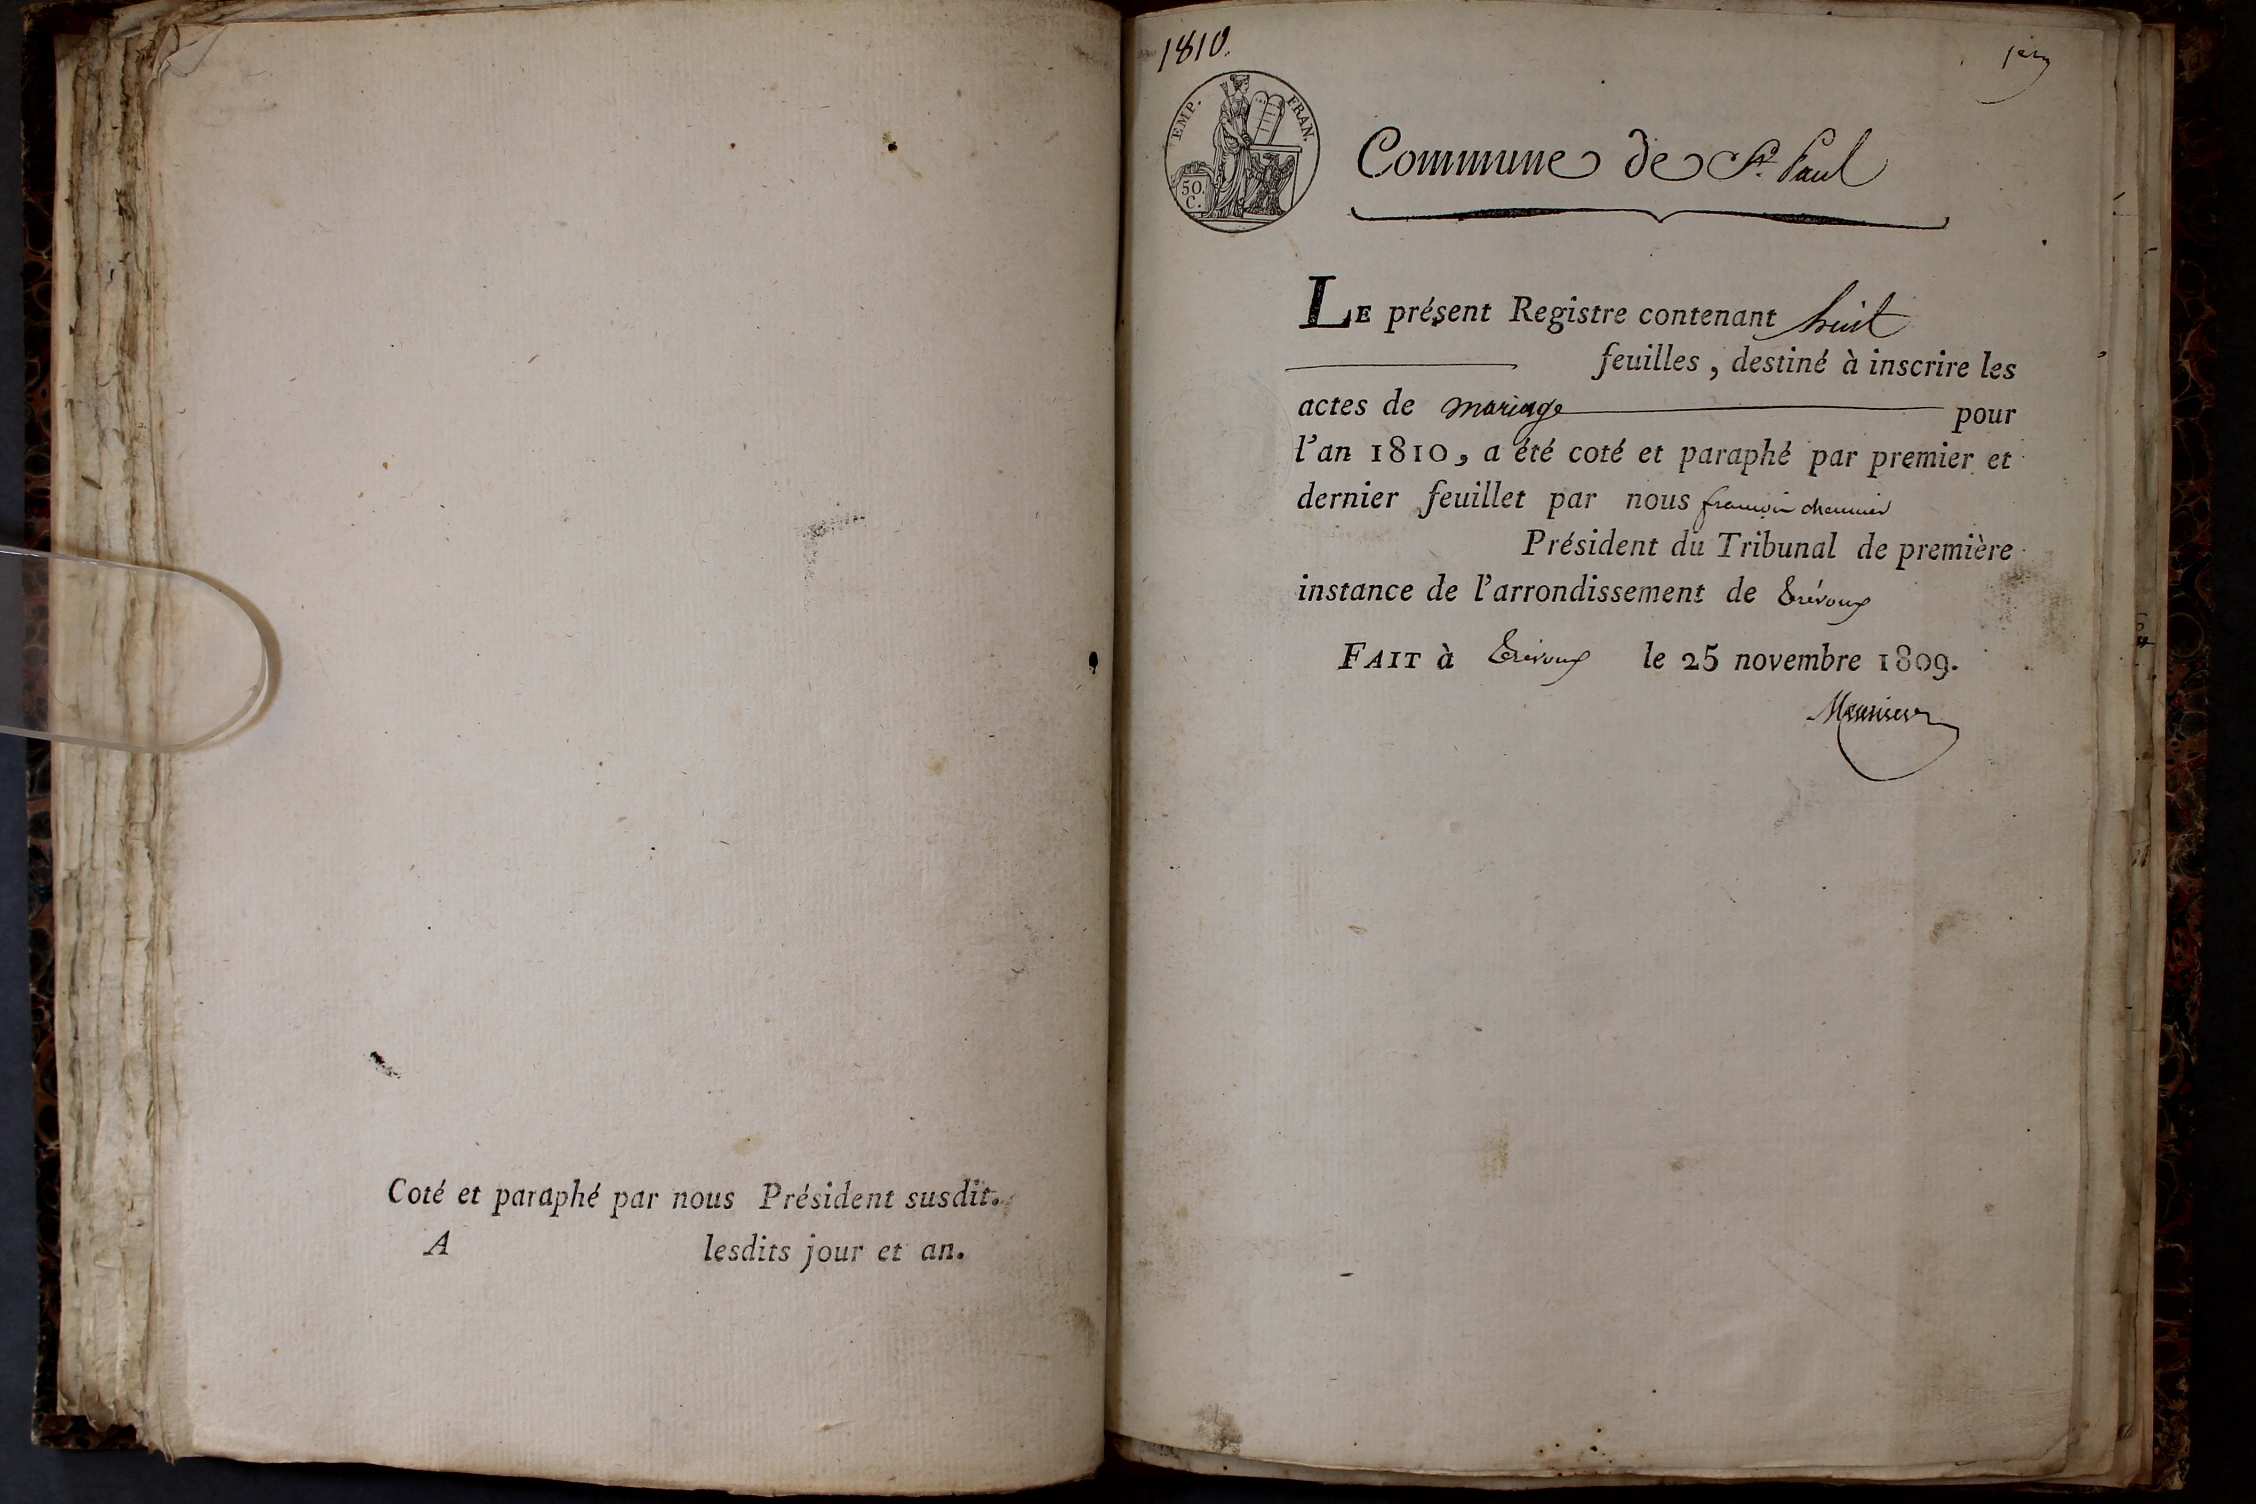 Coté et paraphé par nous Président susdit.
A lesdits jour et an.
1810.
1er
EMP. FRAN.
50.
C.
Commune de St. Paul
LE présent Registre contenant huit
feuilles, destiné à inscrire les
actes de mariage pour
l'an 1810, a été coté et paraphé par premier et
dernier feuillet par nous françois
Président du Tribunal de première
instance de l'arrondissement de Trévoux
FAIT à Trévoux le 25 novembre 1809.